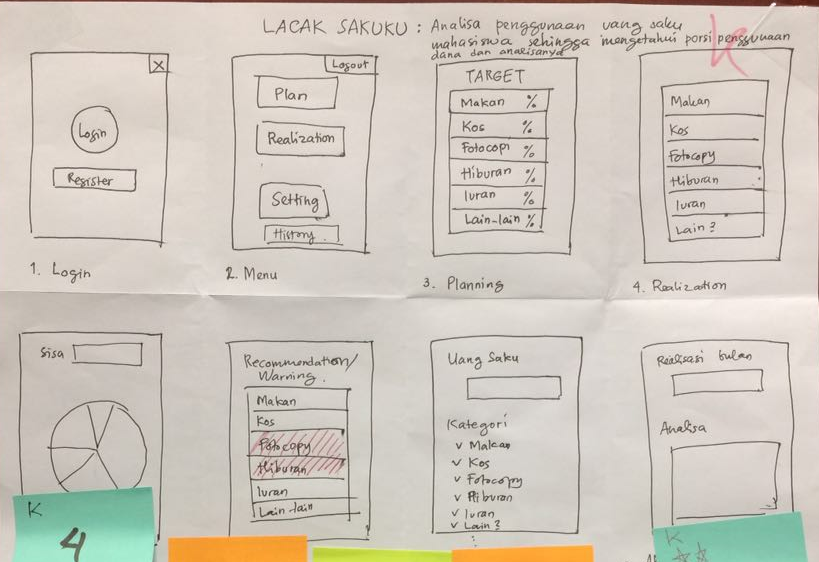 LACAK SAKUKU : Analisa penggunaan uang saku
mahasiswa sehingga mengetahui porsi penggunaan
dana dan analisanya
K
X
Login
Register
1. Login
Logout
Plan
Realization
Setting
History
2. Menu
TARGET
Makan %
Kos %
Fotocopi %
Hiburan %
Iuran %
Lain-lain %
3. Planning
Makan
Kos
Fotocopy
Hiburan
Iuran
Lain2
4. Realization
Sisa
Recommendation/
Warning.
Makan
Kos
Fotocopy
Hiburan
Iuran
Lain-lain
Uang Saku
Kategori
v Makan
v Kos
v Fotocopy
v Hiburan
v Iuran
v Lain2
Realisasi bulan
Analisa
K
4
K